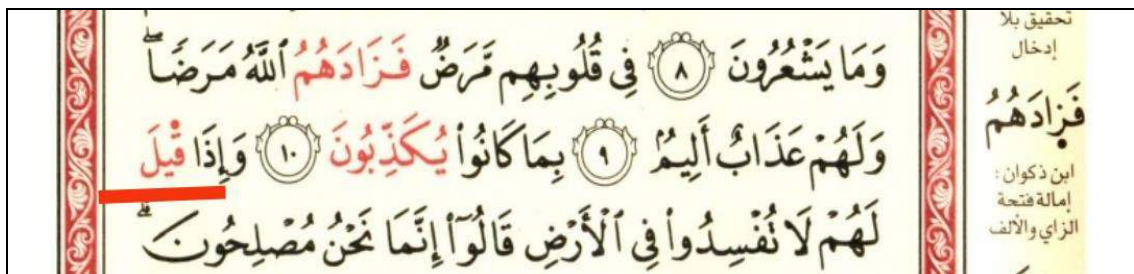 وَمَا يَشْعُرُونَ ٨ فِي قُلُوبِهِم مَّرَضٌ فَزَادَهُمُ ٱللَّهُ مَرَضًاۖ
وَلَهُمْ عَذَابٌ أَلِيمُۢ ٩ بِمَا كَانُوا۟ يُكَذِّبُونَ ١٠ وَإِذَا قِيلَ
لَهُمْ لَا تُفْسِدُوا۟ فِي ٱلْأَرْضِ قَالُوٓا۟ إِنَّمَا نَحْنُ مُصْلِحُونَ
تحقيق بلا
إدخال
فَزادَهُمُ
ابن ذكوان :
إمالة فتحة
الزاي والألف